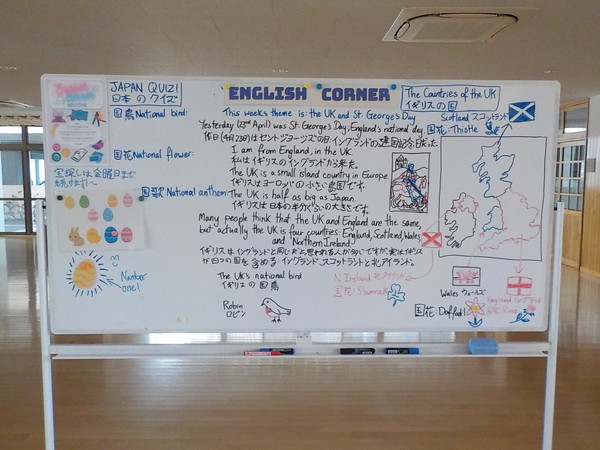 JAPAN QUIZ!
日本のクイズ
国鳥 National bird:
国花 National flower:
国歌 National anthem:
宝探しは金曜日まで
続けます!~
Number
one!
ENGLISH CORNER
This week's theme is: the UK and St. George's Day
Yesterday (23rd April) was St. George's Day, England's national day.
昨日(4月23日)はセントジョージズの日・イングランドの建国記念日だった
I am from England, in the UK.
私はイギリスのイングランドから来た。
The UK is a small island country in Europe.
イギリスはヨーロッパの小さい島国です。
The UK is half as big as Japan.
イギリスは日本の半分ぐらいの大きさです。
Many people think that the UK and England are the same,
but actually the UK is four countries: England, Scotland, Wales,
and Northern Ireland!
イギリスはイングランドと同じだと思われる人が多いですが、実はイギリス
が四つの国を含める:イングランド、スコットランドと北アイランド。
The UK's national bird
イギリスの国鳥
Robin
ロビン
The Countries of the UK
イギリスの国
Scotland スコットランド
国花: Thistle
N Ireland 北アイランド
国花: Shamrock
Wales ウェールズ
国花: Daffodil
England イングランド
Rose